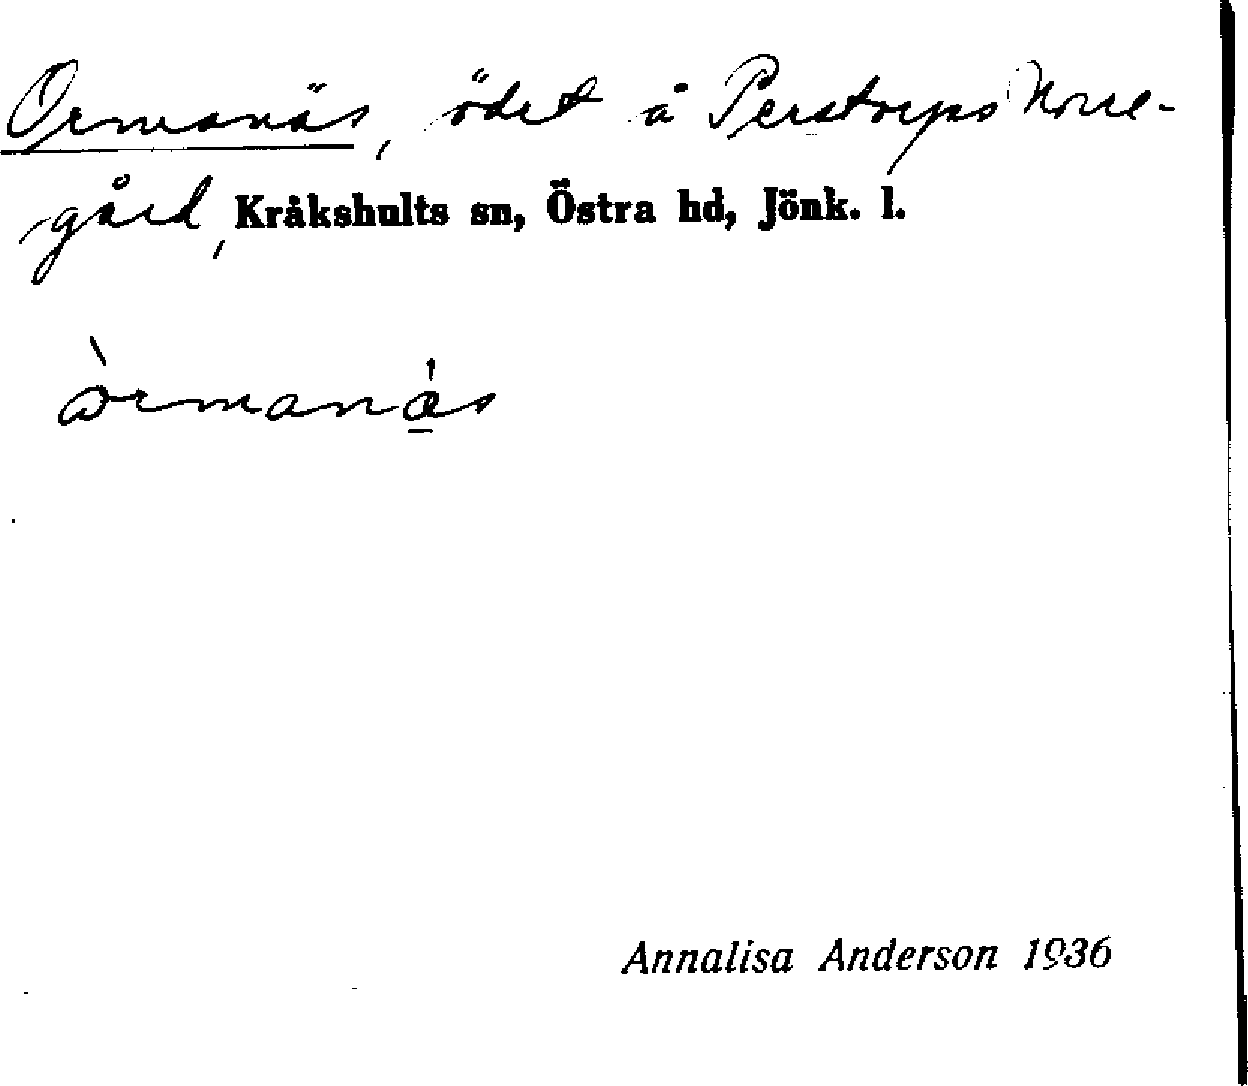 Ormanäs, ödet å Perstorps Norre-
gård, Kråkshults sn, Östra hd, Jönk. l.
òrmanæ̲̍s
Annalisa Anderson 1936